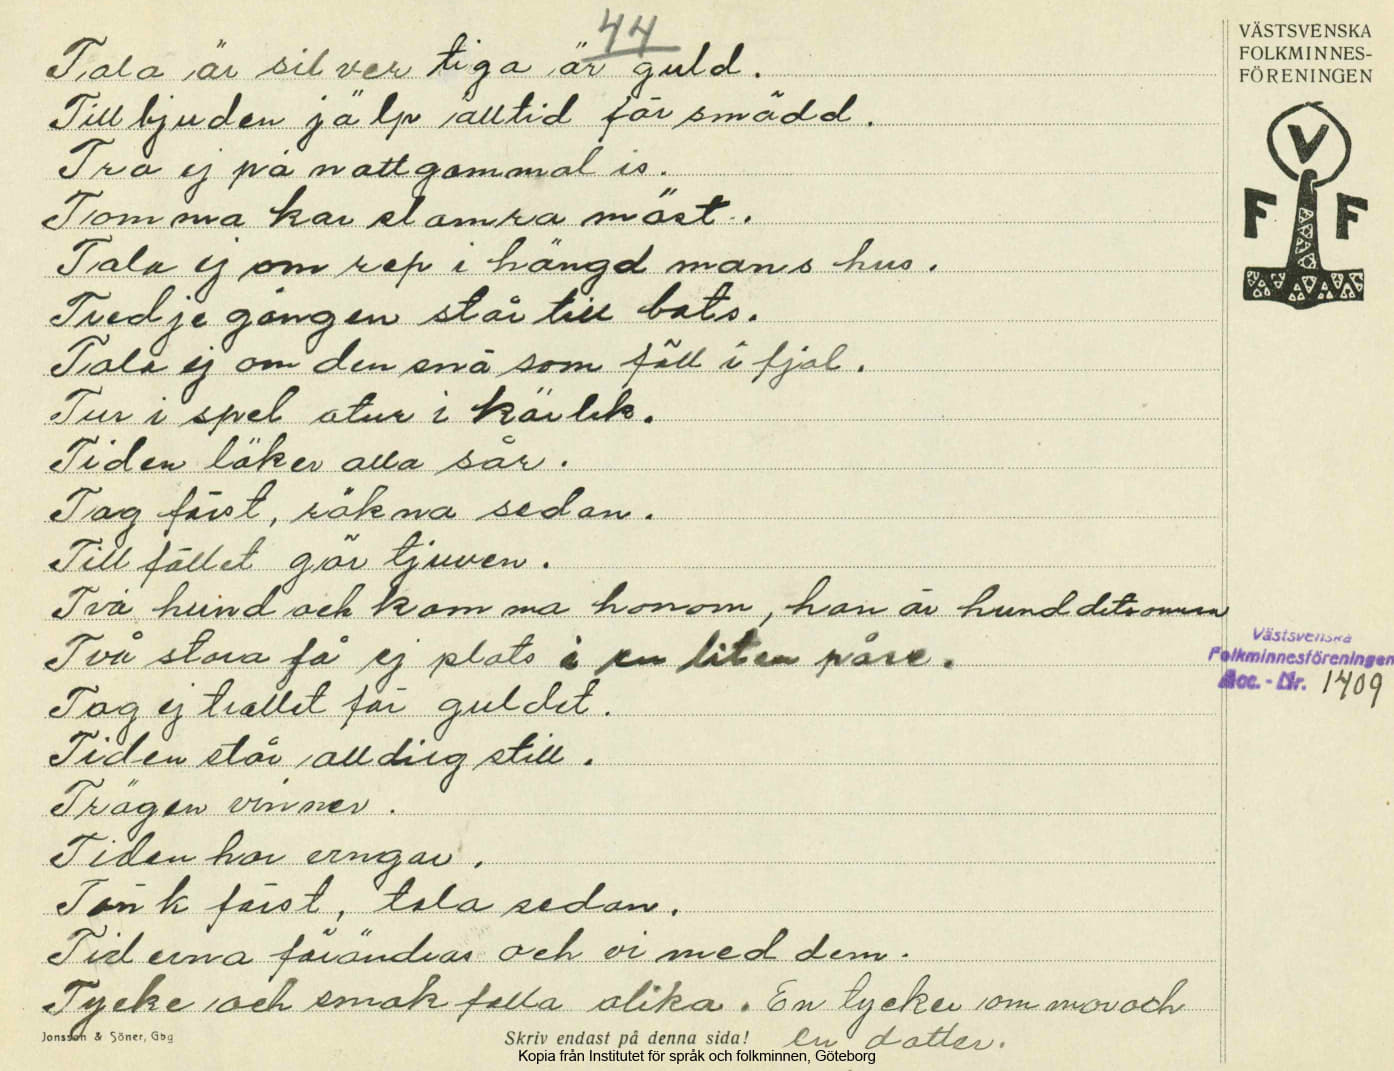 44
Tala är silver tiga är guld.
Till bjuden jälp alltid får smädd.
Tro ej på nattgammal is.
Tomma kar slamra mäst.
Tala ej om rep i hängd mans hus.
Tredje gången står till bots.
Tala ej om den snö som föll i fjol.
Tur i spel otur i kärlek.
Tiden läker alla sår.
Tag först, räkna sedan.
Till fället gör tjuven.
Två hund och kamma honom, han är hund
Två stora få ej plats i en liten påse.
Tag ej trallet för guldet.
Tiden står alldrig still.
Trägen vinner.
Tiden har vingar.
Tänk först, tala sedan.
Tiderna förändras och vi med dem.
Tycke och smak falla olika. En tycker om mor och
en dotter.
VÄSTSVENSKA
FOLKMINNES-
FÖRENINGEN
V
F F
Västsvenska
Folkminnesföreningen
Acc. - Nr. 1409
Jonsson & Söner, Gbg
Skriv endast på denna sida!
Kopia från Institutet för språk och folkminnen, Göteborg